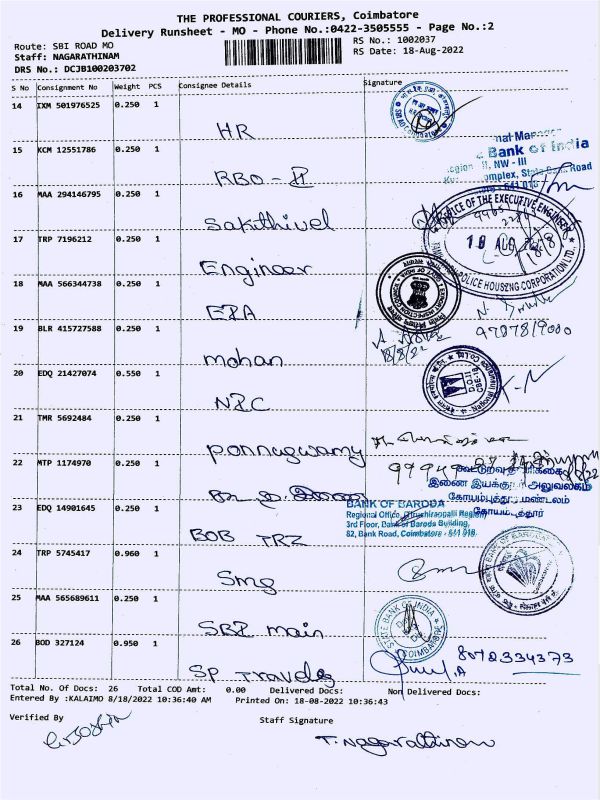 THE PROFESSIONAL COURIERS, Coimbatore
Delivery Runsheet - MO - Phone No.:0422-3505555 - Page No.:2
Route: SBI ROAD MO
RS No.: 1002037
Staff: NAGARATHINAM
RS Date: 18-Aug-2022
DRS No.: DCJB100203702
S No Consignment No Weight PCS Consignee Details Signature
14 IXM 501976525 0.250 1
HR
15 KCM 12551786 0.250 1
RBO - II
Bank of India
NW - III
16 MAA 294146795 0.250 1
Sakithivel
OFFICE OF THE EXECUTIVE ENGINEER
POLICE HOUSING CORPORATION LTD.,
17 TRP 7196212 0.250 1
Engineer
18 MAA 566344738 0.250 1
EIA
19 BLR 415727588 0.250 1
mohan
18/8/22
20 EDQ 21427074 0.550 1
NIC
21 TMR 5692484 0.250 1
Ponnuswamy
22 MTP 1174970 0.250 1
இணை இயக்குநர் அலுவலகம்
கோயம்புத்தூர் மண்டலம்
கோயம்புத்தூர்
23 EDQ 14901645 0.250 1
BOB TRZ
BANK OF BARODA
Regional Office, (Tiruchirappalli Region)
3rd Floor, Bank of Baroda Building,
82, Bank Road, Coimbatore - 641 018.
24 TRP 5745417 0.960 1
Smg
25 MAA 565689611 0.250 1
SBI main
STATE BANK OF INDIA
COIMBATORE
26 BOD 327124 0.950 1
SP Travels
8072334373
Total No. Of Docs: 26 Total COD Amt: 0.00 Delivered Docs: Non Delivered Docs:
Entered By :KALAIMO 8/18/2022 10:36:40 AM Printed On: 18-08-2022 10:36:43
Verified By
Staff Signature
T. Nagarathinam